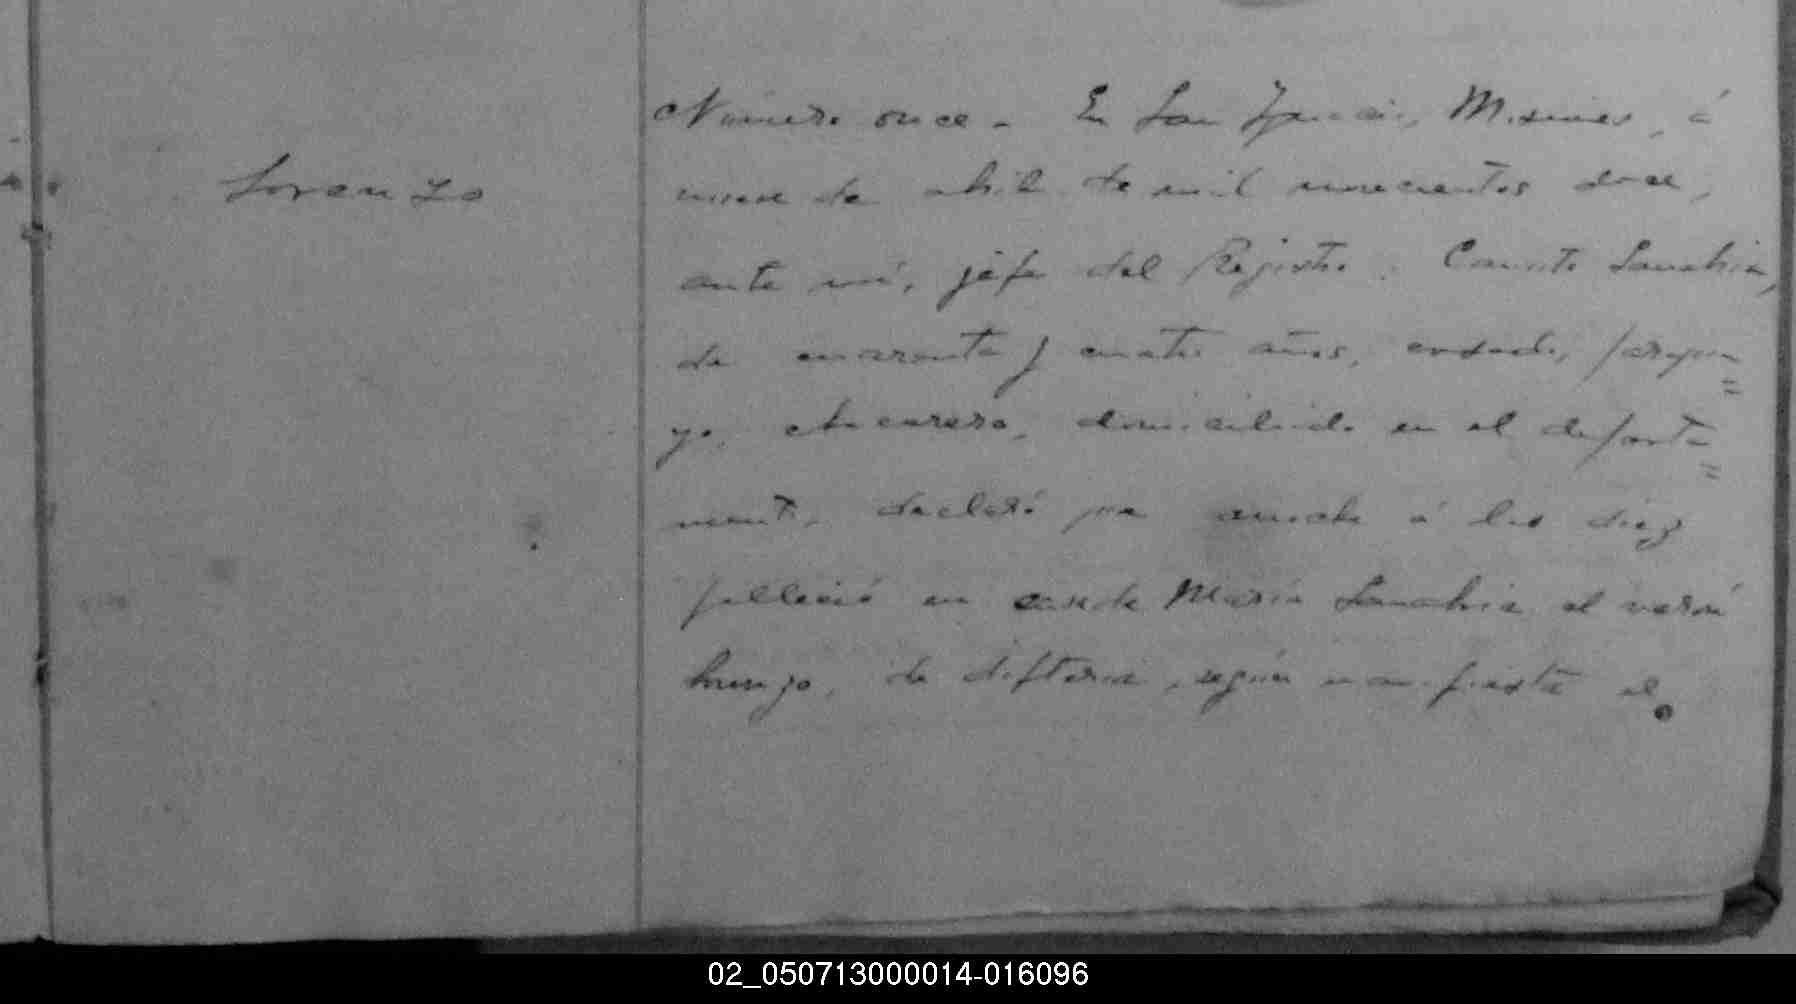 Lorenzo
Número once - En San Ignacio, Misiones, á
nueve de abril de mil novecientos doce,
ante mí, jefe del Registro. Canuto Sanabria,
de cuarenta y cuatro años, casado, paragua=
yo, chacarero, domiciliado en el departa=
mento, declaró que anoche á las diez
falleció en casa de María Sanabria el varón
Lorenzo, de difteria, según manifiesta el
02_050713000014-016096